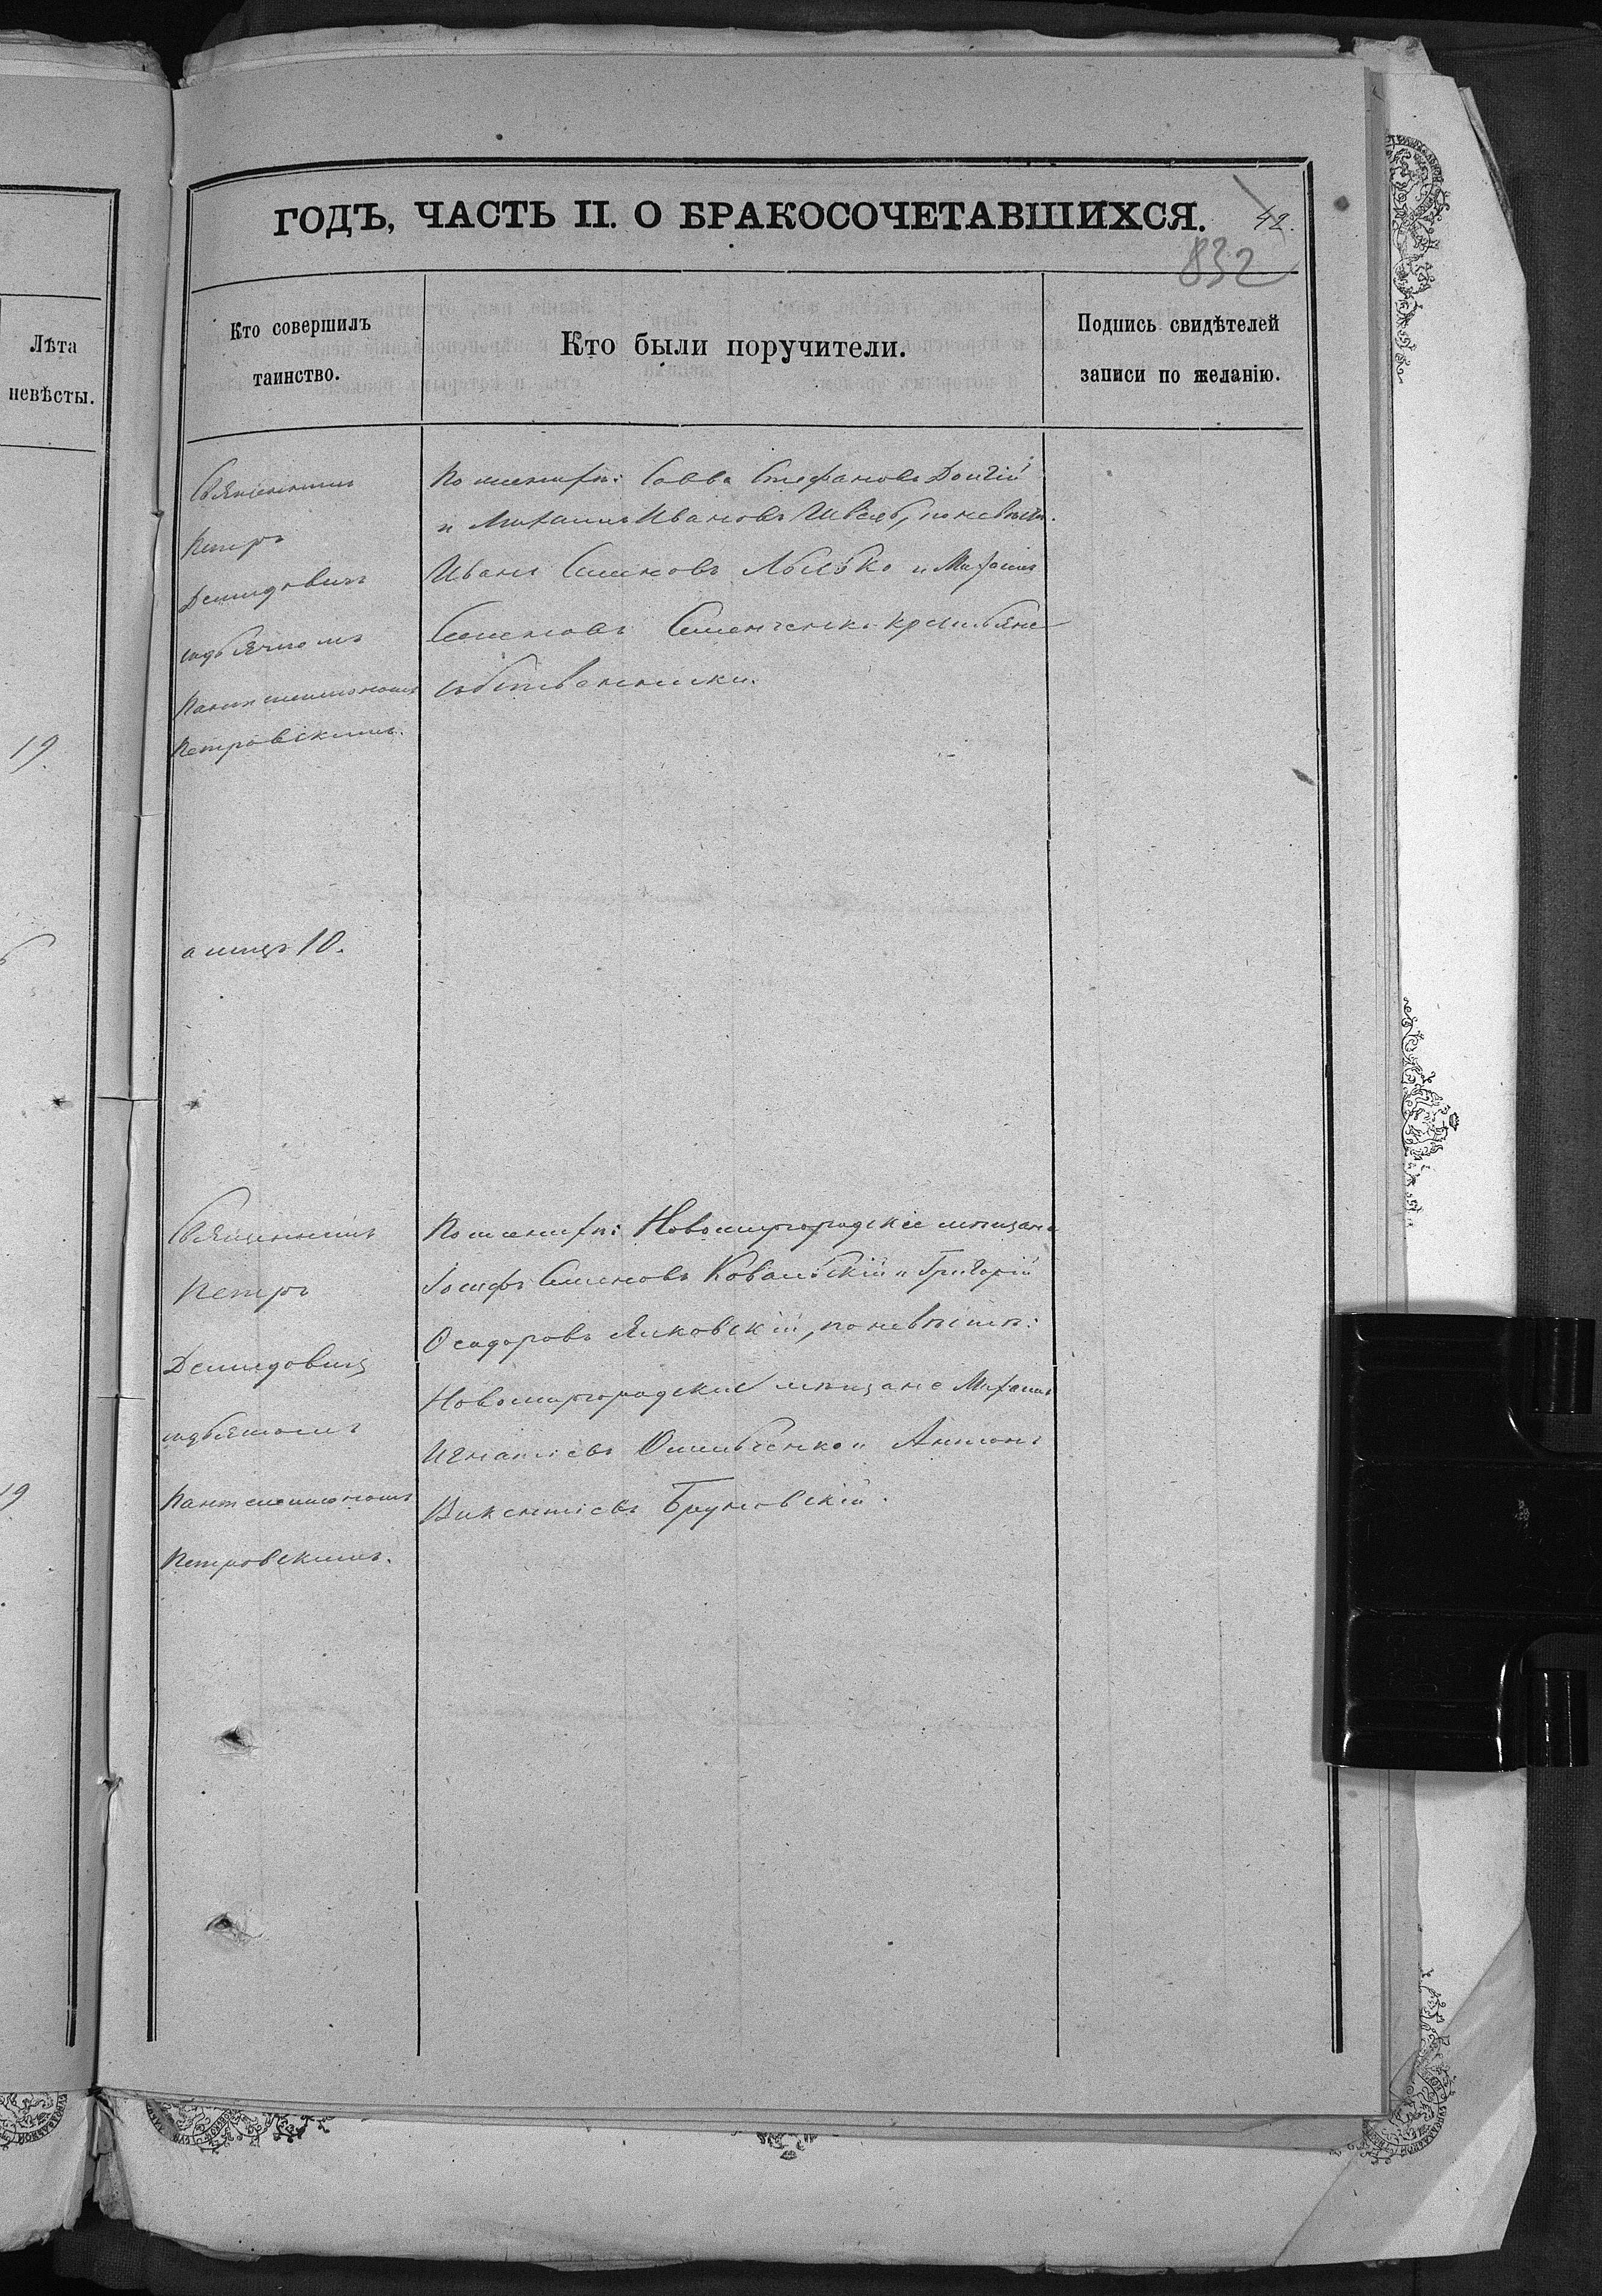 ГОДЪ, ЧАСТЬ II. О БРАКОСОЧЕТАВШИХСЯ.
42.
832
Лѣта
невѣсты.
Кто совершилъ
таинство.
Кто были поручители.
Подпись свидѣтелей
записи по желанію.
19.
19
Священникъ
Петръ
Демидовичъ
съ дьячкомъ
Пантелеимономъ
Петровскимъ.
По женихѣ: Савва Стефановъ Долгій
и Михаилъ Ивановъ Швецъ, по невѣстѣ:
Иванъ Семеновъ и Михаилъ
Семеновъ Семенченко крестьяне
собственники.
10.
Священникъ
Петръ
Демидовичъ
съ дьячкомъ
Пантелеимономъ
Петровскимъ.
По женихѣ: Новомиргородскіе мѣщане
Іосифъ Семеновъ Ковальскій и Григорій
Осадоровъ Янковскій, по невѣстѣ:
Новомиргородскіе мѣщане Михаилъ
Игнатіевъ и Антонъ
Викентіевъ Бруновскій.